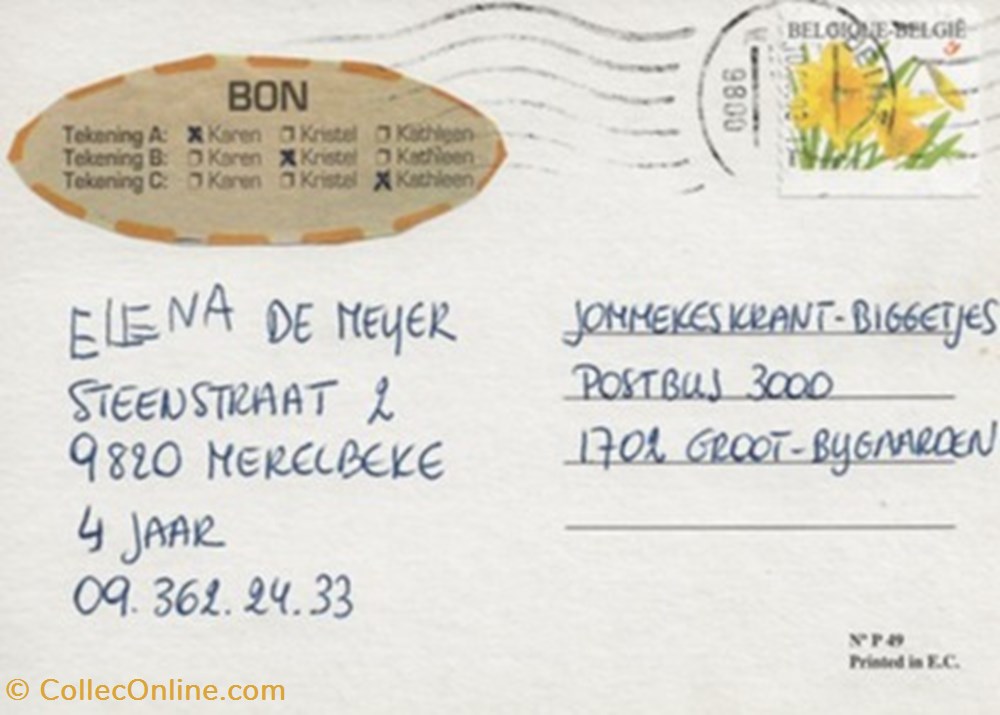 BELGIQUE-BELGIË
9800
BON
Tekening A: x Karen Kristel Kathleen
Tekening B: Karen x Kristel Kathleen
Tekening C: Karen Kristel x Kathleen
ELENA DE MEYER
STEENSTRAAT 2
9820 MERELBEKE
4 JAAR
09.362.24.33
JOMMEKESKRANT-BIGGETJES
POSTBUS 3000
1702 GROOT-BYGAARDEN
Nº P 49
Printed in E.C.
© CollecOnline.com